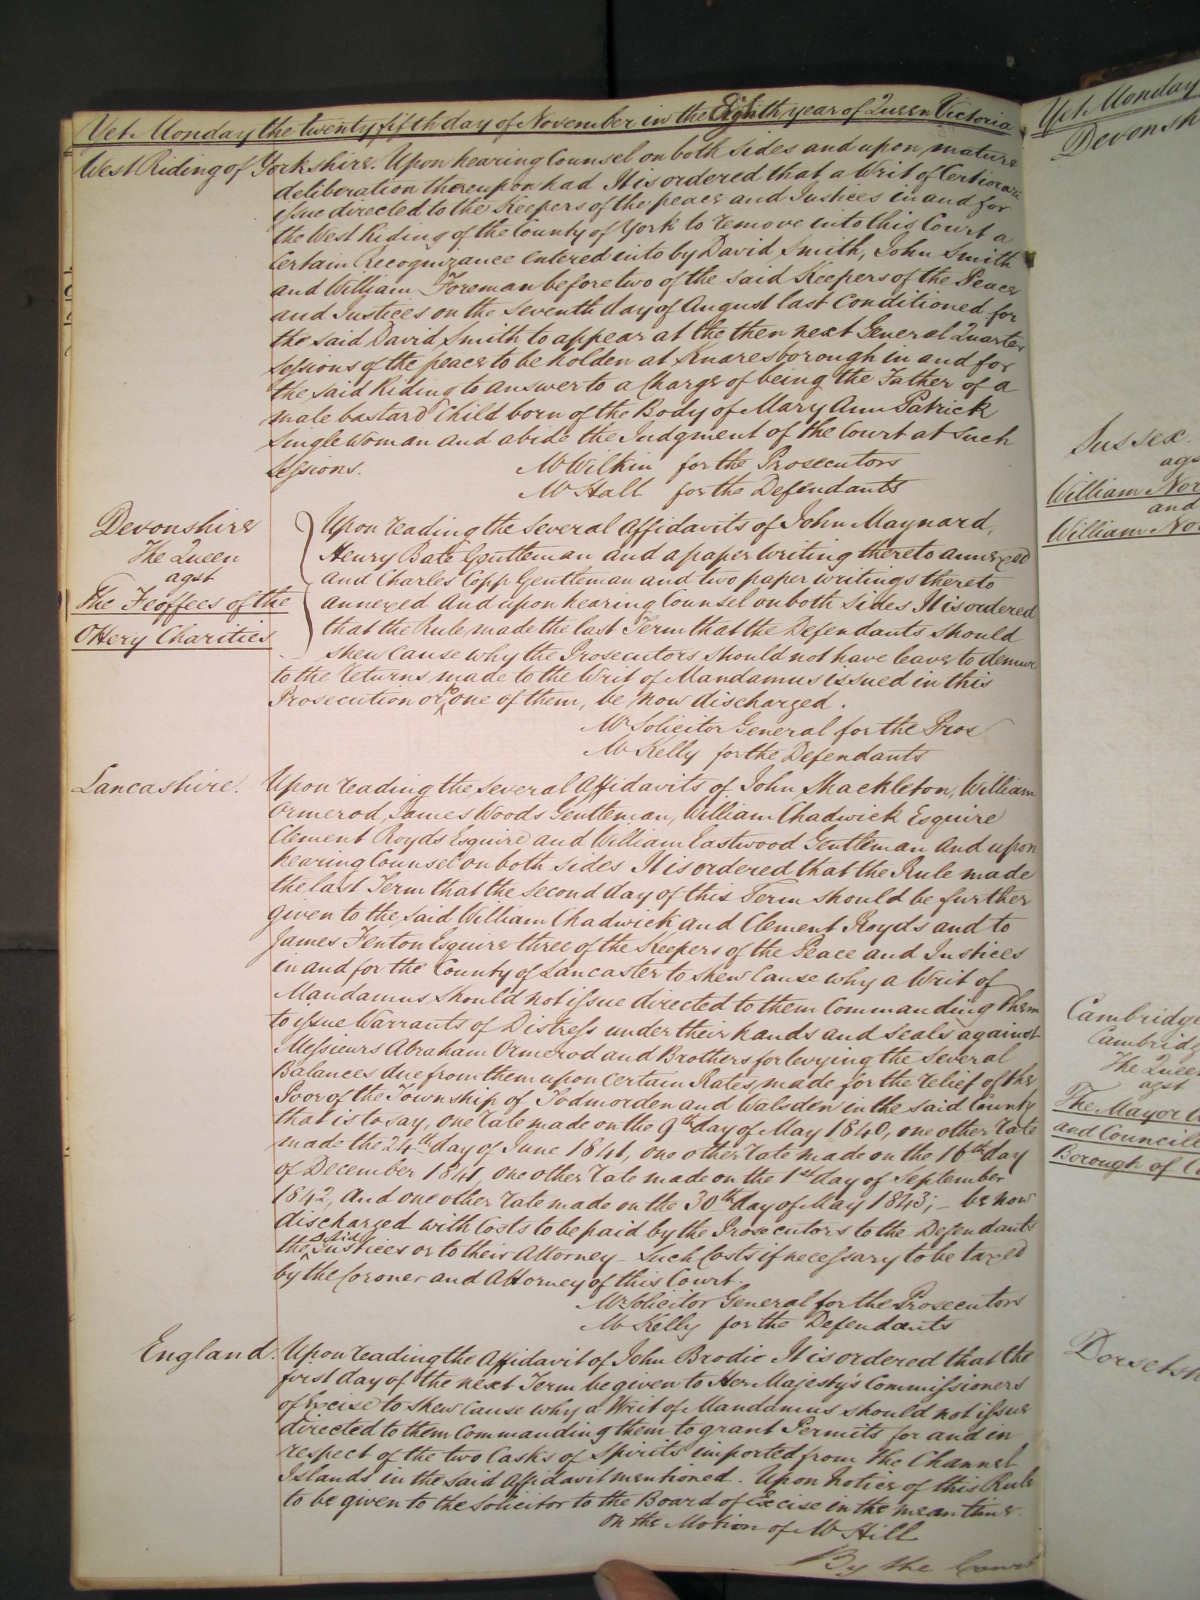 Yet Monday the twenty fifth day of November in the Eighth year of Queen Victoria
West Riding of Yorkshire. Upon hearing Counsel on both sides and upon mature
deliberation thereupon had It is ordered that a Writ of Certiorari
issue directed to the Keepers of the peace and Justices in and for
the West Riding of the County of York to remove into this Court a
Certain Recognizance entered into by David Smith, John Smith
and William Foreman before two of the said Keepers of the Peace
and Justices on the seventh day of August last Conditioned for
the said David Smith to appear at the then next General Quarter
Sessions of the peace to be holden at Knaresborough in and for
the said Riding to answer to a Charge of being the Father of a
male bastard Child born of the Body of Mary Ann Patrick
Single Woman and abide the Judgment of the Court at such
Sessions.
Mr Wilkin for the Prosecutors
Mr Hall for the Defendants
Devonshire
The Queen
agst
The Feoffees of the
Ottery Charities
Upon reading the several Affidavits of John Maynard,
Henry Bate Gentleman and a paper writing thereto annexed
and Charles Copp Gentleman and two paper writings thereto
annexed And upon hearing Counsel on both sides It is ordered
that the Rule made the last Term that the Defendants should
shew Cause why the Prosecutors should not have leave to demur
to the Returns made to the Writ of Mandamus issued in this
Prosecution or to one of them, be now discharged.
Mr Solicitor General for the Pros
Mr Kelly for the Defendants
Lancashire. Upon reading the several Affidavits of John Shackleton, William
Ormerod, James Woods Gentleman, William Chadwick Esquire
Clement Royds Esquire and William Eastwood Gentleman And upon
hearing Counsel on both sides It is ordered that the Rule made
the last Term that the second day of this Term should be further
given to the said William Chadwick and Clement Royds and to
James Fenton Esquire three of the Keepers of the Peace and Justices
in and for the County of Lancaster to shew Cause why a Writ of
Mandamus should not issue directed to them Commanding them
to issue Warrants of Distress under their hands and seals against
Messieurs Abraham Ormerod and Brothers for levying the several
Balances due from them upon Certain Rates made for the relief of the
Poor of the Township of Todmorden and Walsden in the said County
that is to say, one rate made on the 9th day of May 1840, one other rate
made the 24th day of June 1841, one other rate made on the 16th day
of December 1841, one other rate made on the 1st day of September
1842, and one other rate made on the 30th day of May 1843; - be now
discharged with Costs to be paid by the Prosecutors to the Defendants
the said Justices or to their Attorney - Such Costs if necessary to be taxed
by the Coroner and Attorney of this Court.
Mr Solicitor General for the Prosecutors
Mr Kelly for the Defendants
England. Upon reading the Affidavit of John Brodie It is ordered that the
first day of the next Term be given to Her Majesty's Commissioners
of Excise to shew cause why a Writ of Mandamus should not issue
directed to them Commanding them to grant Permits for and in
respect of the two Casks of Spirits imported from the Channel
Islands in the said Affidavit mentioned. Upon notice of this Rule
to be given to the Solicitor to the Board of Excise in the mean time.
On the Motion of Mr Hill
By the Court
Yet Monday
Devonsh
Sussex.
ags
William Nor
and
William No
Cambridge
Cambridg
The Queen
agst
The Mayor
and Councill
Borough of C
Dorsetsh